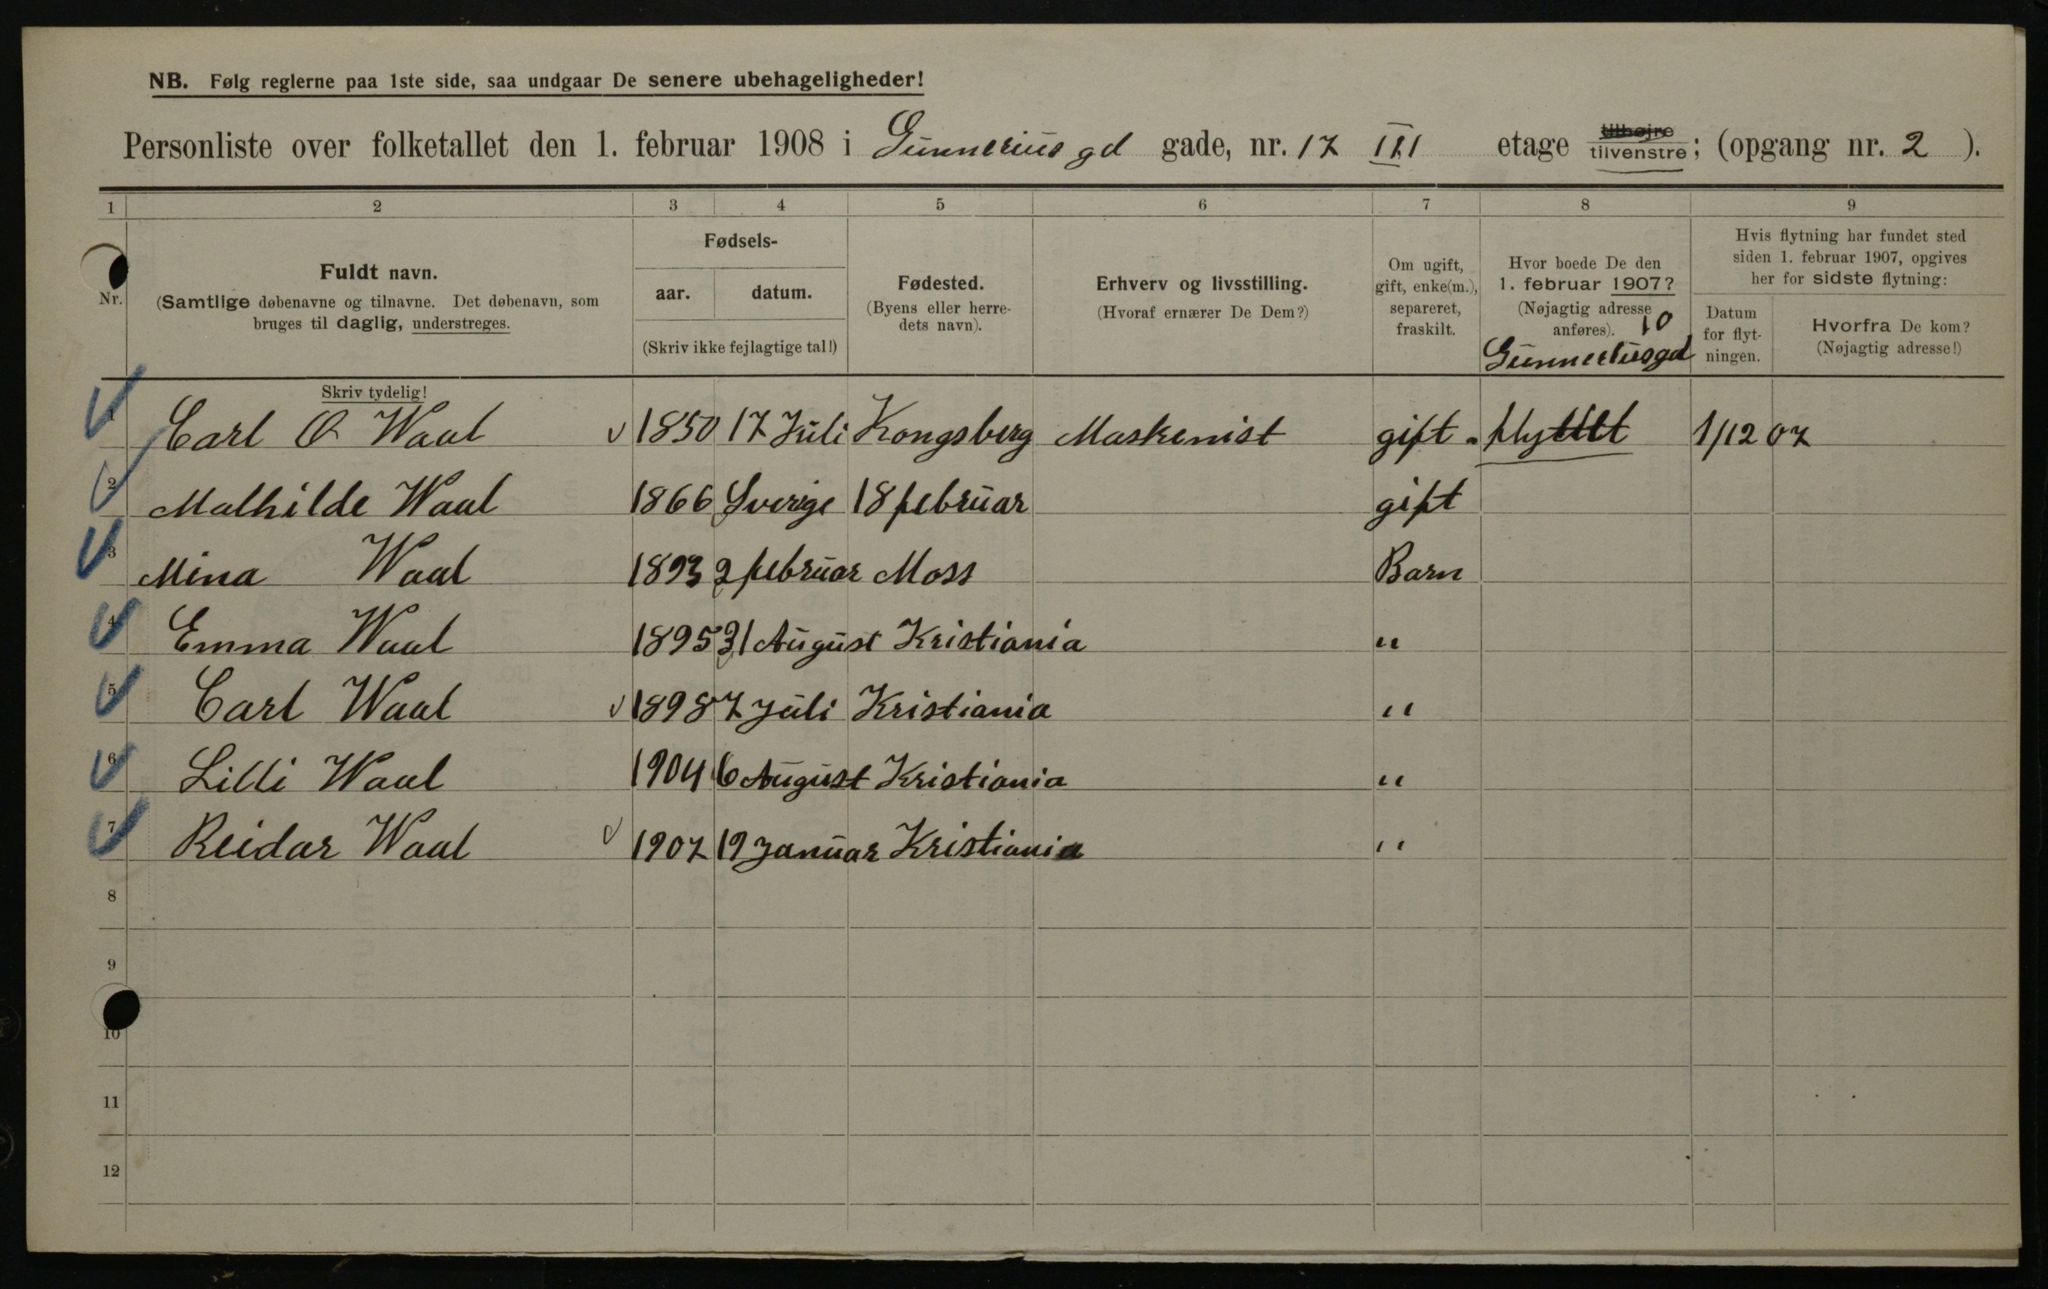 NB. Følg reglerne paa 1ste side, saa undgaar De senere ubehageligheder!
Personliste over folketallet den 1. februar 1908 i Gunneriusgd gade, nr. 17 III etage tilhøjre tilvenstre; (opgang nr. 2 ).
1 2 3 4 5 6 7 8 9
Nr.
Fuldt navn.
(Samtlige døbenavne og tilnavne. Det døbenavn, som
bruges til daglig, understreges.
Fødsels-
aar. datum.
(Skriv ikke fejlagtige tal!)
Fødested.
(Byens eller herre-
dets navn).
Erhverv og livsstilling.
(Hvoraf ernærer De Dem?)
Om ugift,
gift, enke(m.),
separeret,
fraskilt.
Hvor boede De den
1. februar 1907?
(Nøjagtig adresse
anføres). 10
Gunneriusgd
Hvis flytning har fundet sted
siden 1. februar 1907, opgives
her for sidste flytning:
Datum
for flyt-
ningen.
Hvorfra De kom?
(Nøjagtig adresse!)
Skriv tydelig!
1 Carl O Waal 1850 17 Juli Kongsberg Maskenist gift - flyttet 1/12 07
2 Mathilde Waal 1866 Sverige 18 februar gift
3 Mina Waal 1893 2 februar Moss Barn
4 Emma Waal 1895 31 August Kristiania "
5 Carl Waal 1898 7 Juli Kristiania "
6 Lilli Waal 1904 6 August Kristiania "
7 Reidar Waal 1907 19 Januar Kristiania "
8
9
10
11
12